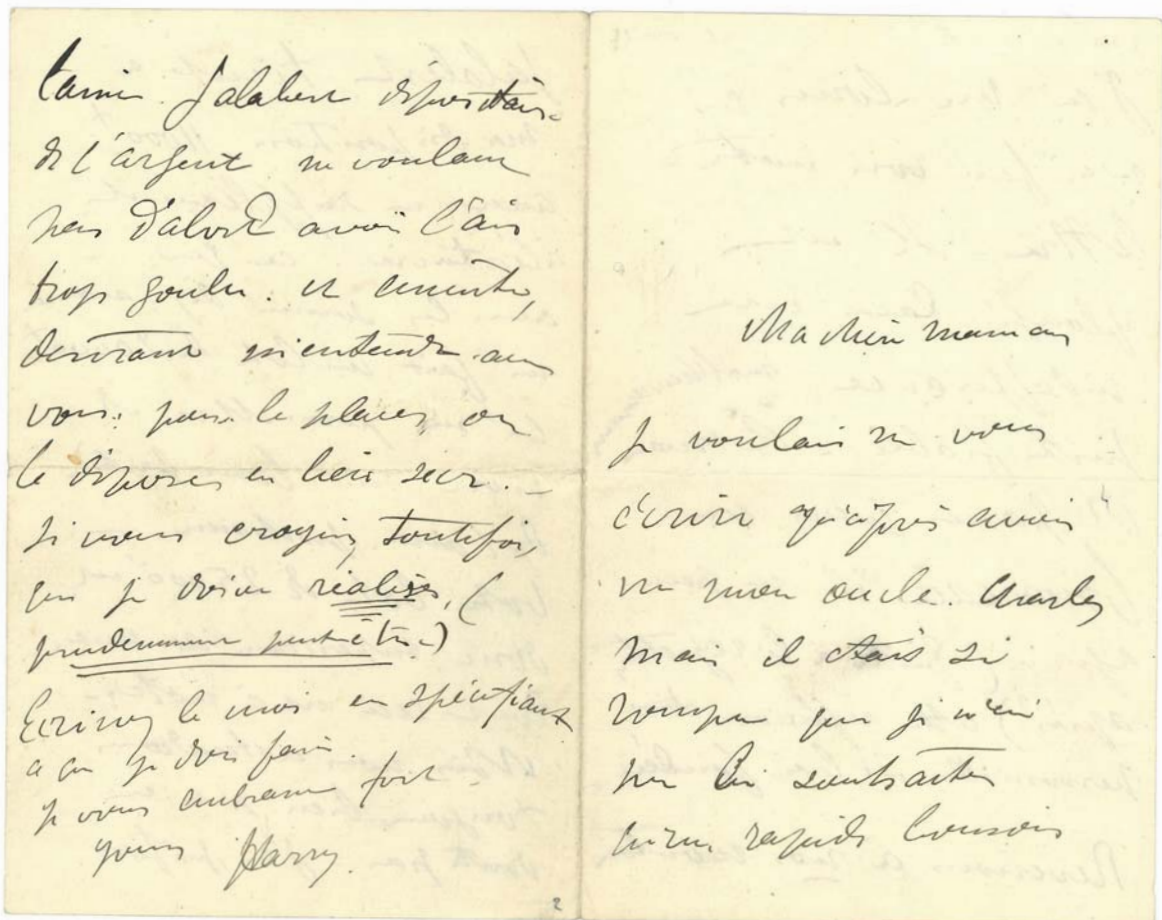 Jalabert dépositaire
de l'argent ne voulant
pas d'abord avoir l'air
trop goulu. et ensuite,
désirant m'entendre avec
vous. pour le placer, ou
le déposer en lieu sûr. –
Si vous croyiez toutefois
que je doive réaliser, (
prudemment peut être.)
Ecrivez le moi en spécifiant
ce que je dois faire.
je vous embrasse fort.
yours Harry.
2
Ma chère Maman
je voulais ne vous
écrire qu'après avoir
vu mon oncle. Charles
mais il était si
rompu que je n'ai
pu lui
qu'un rapide bonsoir